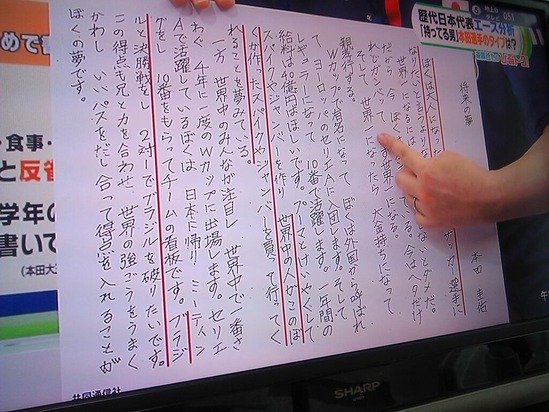 歴代日本代表エース分析
「持ってる男」本田選手のタイプは?
めで書
・食事・
と反省
学年の
書いて
(本田大
将来の夢
本田 圭佑
ぼくは大人になっ サッカー選手に
なりたいと言うよりな
世界一になるには しないとダメだ。
だから 今 ぼく いる。今はヘタだけ
れどガンバって 必ず世界一になる。
そして 世界一になったら 大金持ちになって
親孝行する。
Wカップで有名になって ぼくは外国から呼ばれ
て ヨーロッパのセリエAに入団します。そして
レギュラーになって 10番で活躍します。一年間の
給料は40億円はほしいです。プーマとけいやくして
スパイクやジャンバーを作り 世界中の人が このぼ
くが作ったスパイクやジャンバーを買って行ってく
れることを夢みている。
一方 世界中のみんなが注目し 世界中で一番さ
わぐ 4年に一度のWカップに出場します。セリエ
Aで活躍しているぼくは 日本に帰り ミーティン
グをし 10番をもらってチームの看板です。ブラジ
ルと決勝戦をし 2対1でブラジルを破りたいです。
この得点も兄と力を合わせ 世界の強ごうをうまく
かわし いいパスをだし合って得点を入れることが
ぼくの夢です。
共同通信社
SHARP